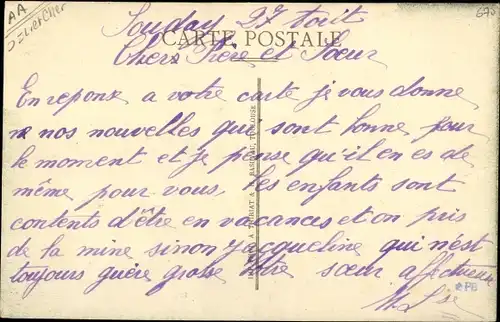 AA
Loir et Cher
675
Souday 27 Aoit
CARTE POSTALE
Chers Frère et Soeur
En reponse a votre carte je vous donne
nos nouvelles qui sont bonne pour
le moment et je pense qu'il en es de
même pour vous, les enfants sont
contents d'être en vacances et on pris
de la mine sinon Jacqueline qui n'est
toujours guère grosse Votre sœur affectueuse
PB